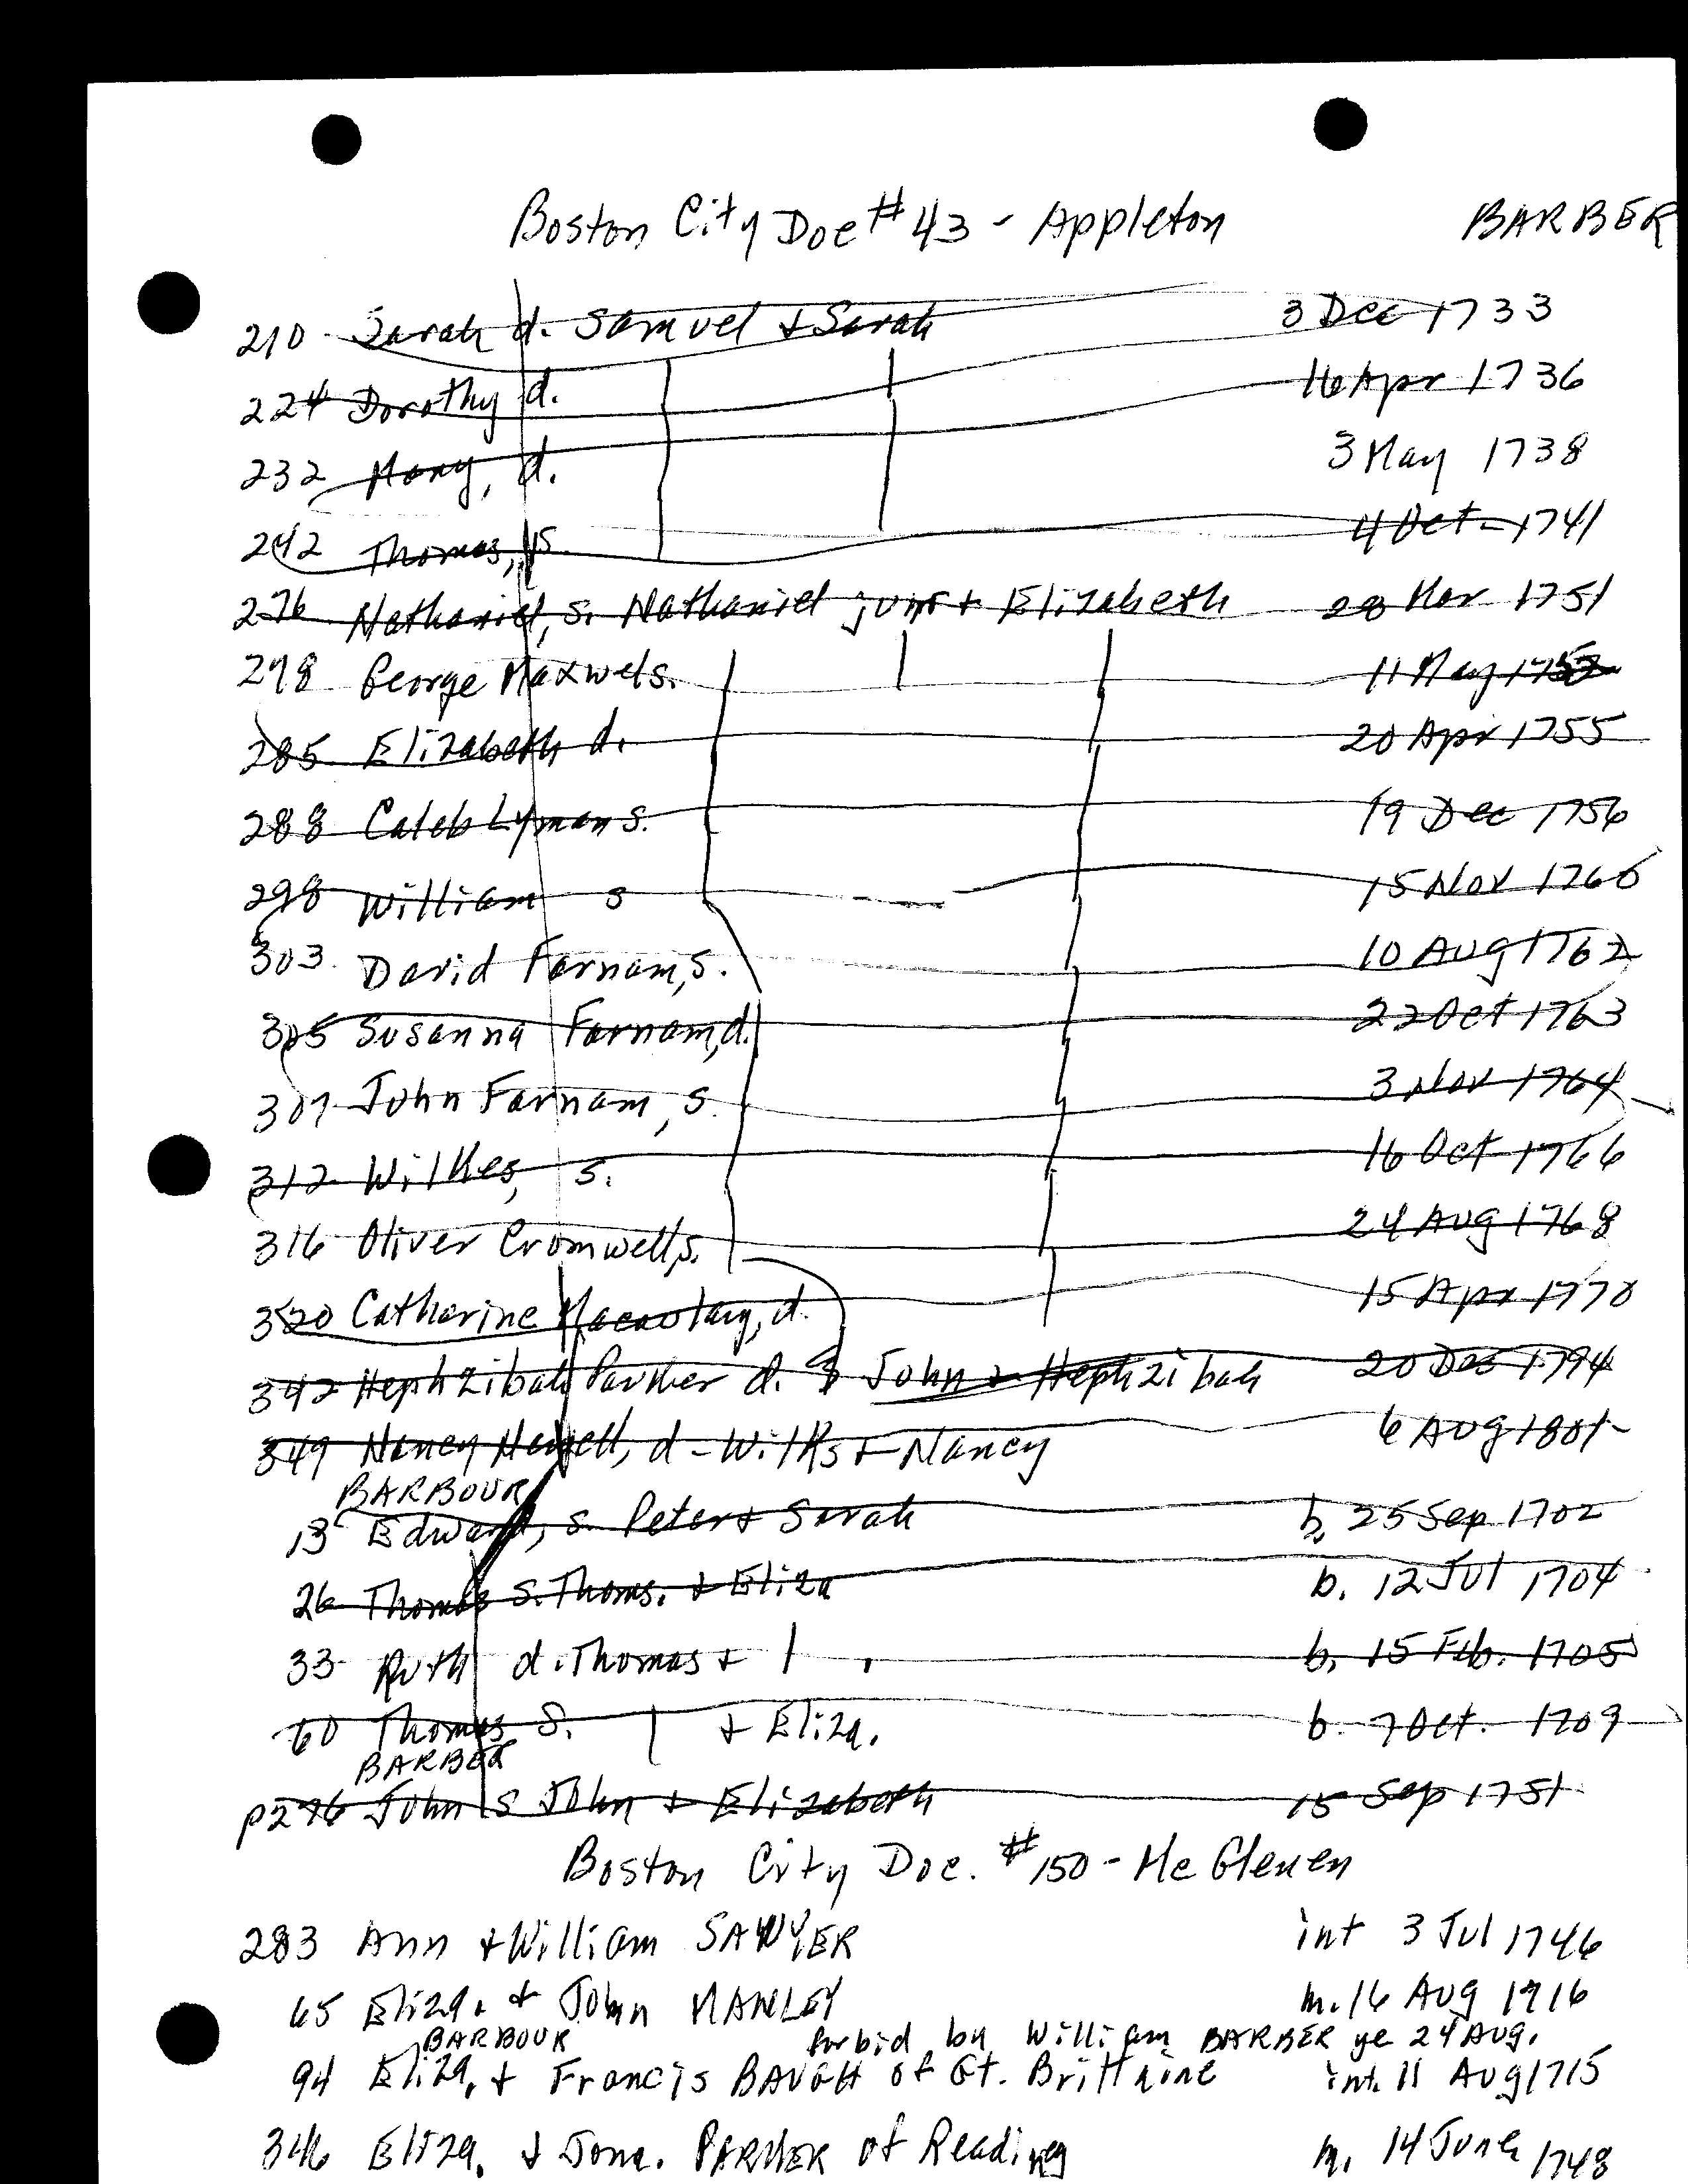 Boston City Doc # 43 - Appleton BARBER
210 Sarah d. Samuel + Sarah 3 Dec 1733
224 Dorothy d. 16 Apr 1736
232 Mary, d. 3 May 1738
242 Thomas, s. 4 Oct - 1741
276 Nathaniel, s. Nathaniel junr + Elizabeth 28 Mar 1751
278 George Maxwel s. 11 May 1752
285 Elizabeth d. 20 Apr 1755
288 Caleb Lyman s. 19 Dec 1756
298 William s 15 Nov 1760
303 David Farnam, s. 10 Aug 1762
305 Susanna Farnam, d. 22 Oct 1763
307 John Farnam, s. 3 Nov 1764
312 Wilkes, s. 16 Oct 1766
316 Oliver Cromwell, s. 24 Aug 1768
320 Catharine Macaulay, d. 15 Apr 1770
342 Hephzibah Parker d. John + Hephzibah 20 Dec 1794
349 Nancy, d - Wilks + Nancy 6 Aug 1801
BARBOUR
13 Edward, s. Peter + Sarah b. 25 Sep 1702
26 Thomas s. Thoms. + Eliza b. 12 Jul 1704
33 Ruth d. Thomas + b. 15 Feb. 1705
60 Thomas S. + Eliza. b. 7 Oct. 1709
BARBER
p276 John s John + Elizabeth 15 Sep 1751
Boston City Doc. # 150 - Mc Glenen
283 Ann + William SAWYER int 3 Jul 1746
65 Eliza. + John MANLEY m. 16 Aug 1716
BARBOUR forbid by William BARBER ye 24 Aug.
94 Eliza. + Francis BAUGH of Gt. Brittaine int. 11 Aug 1715
346 Eliza. + Jona. PARKER of Reading m. 14 June 1748